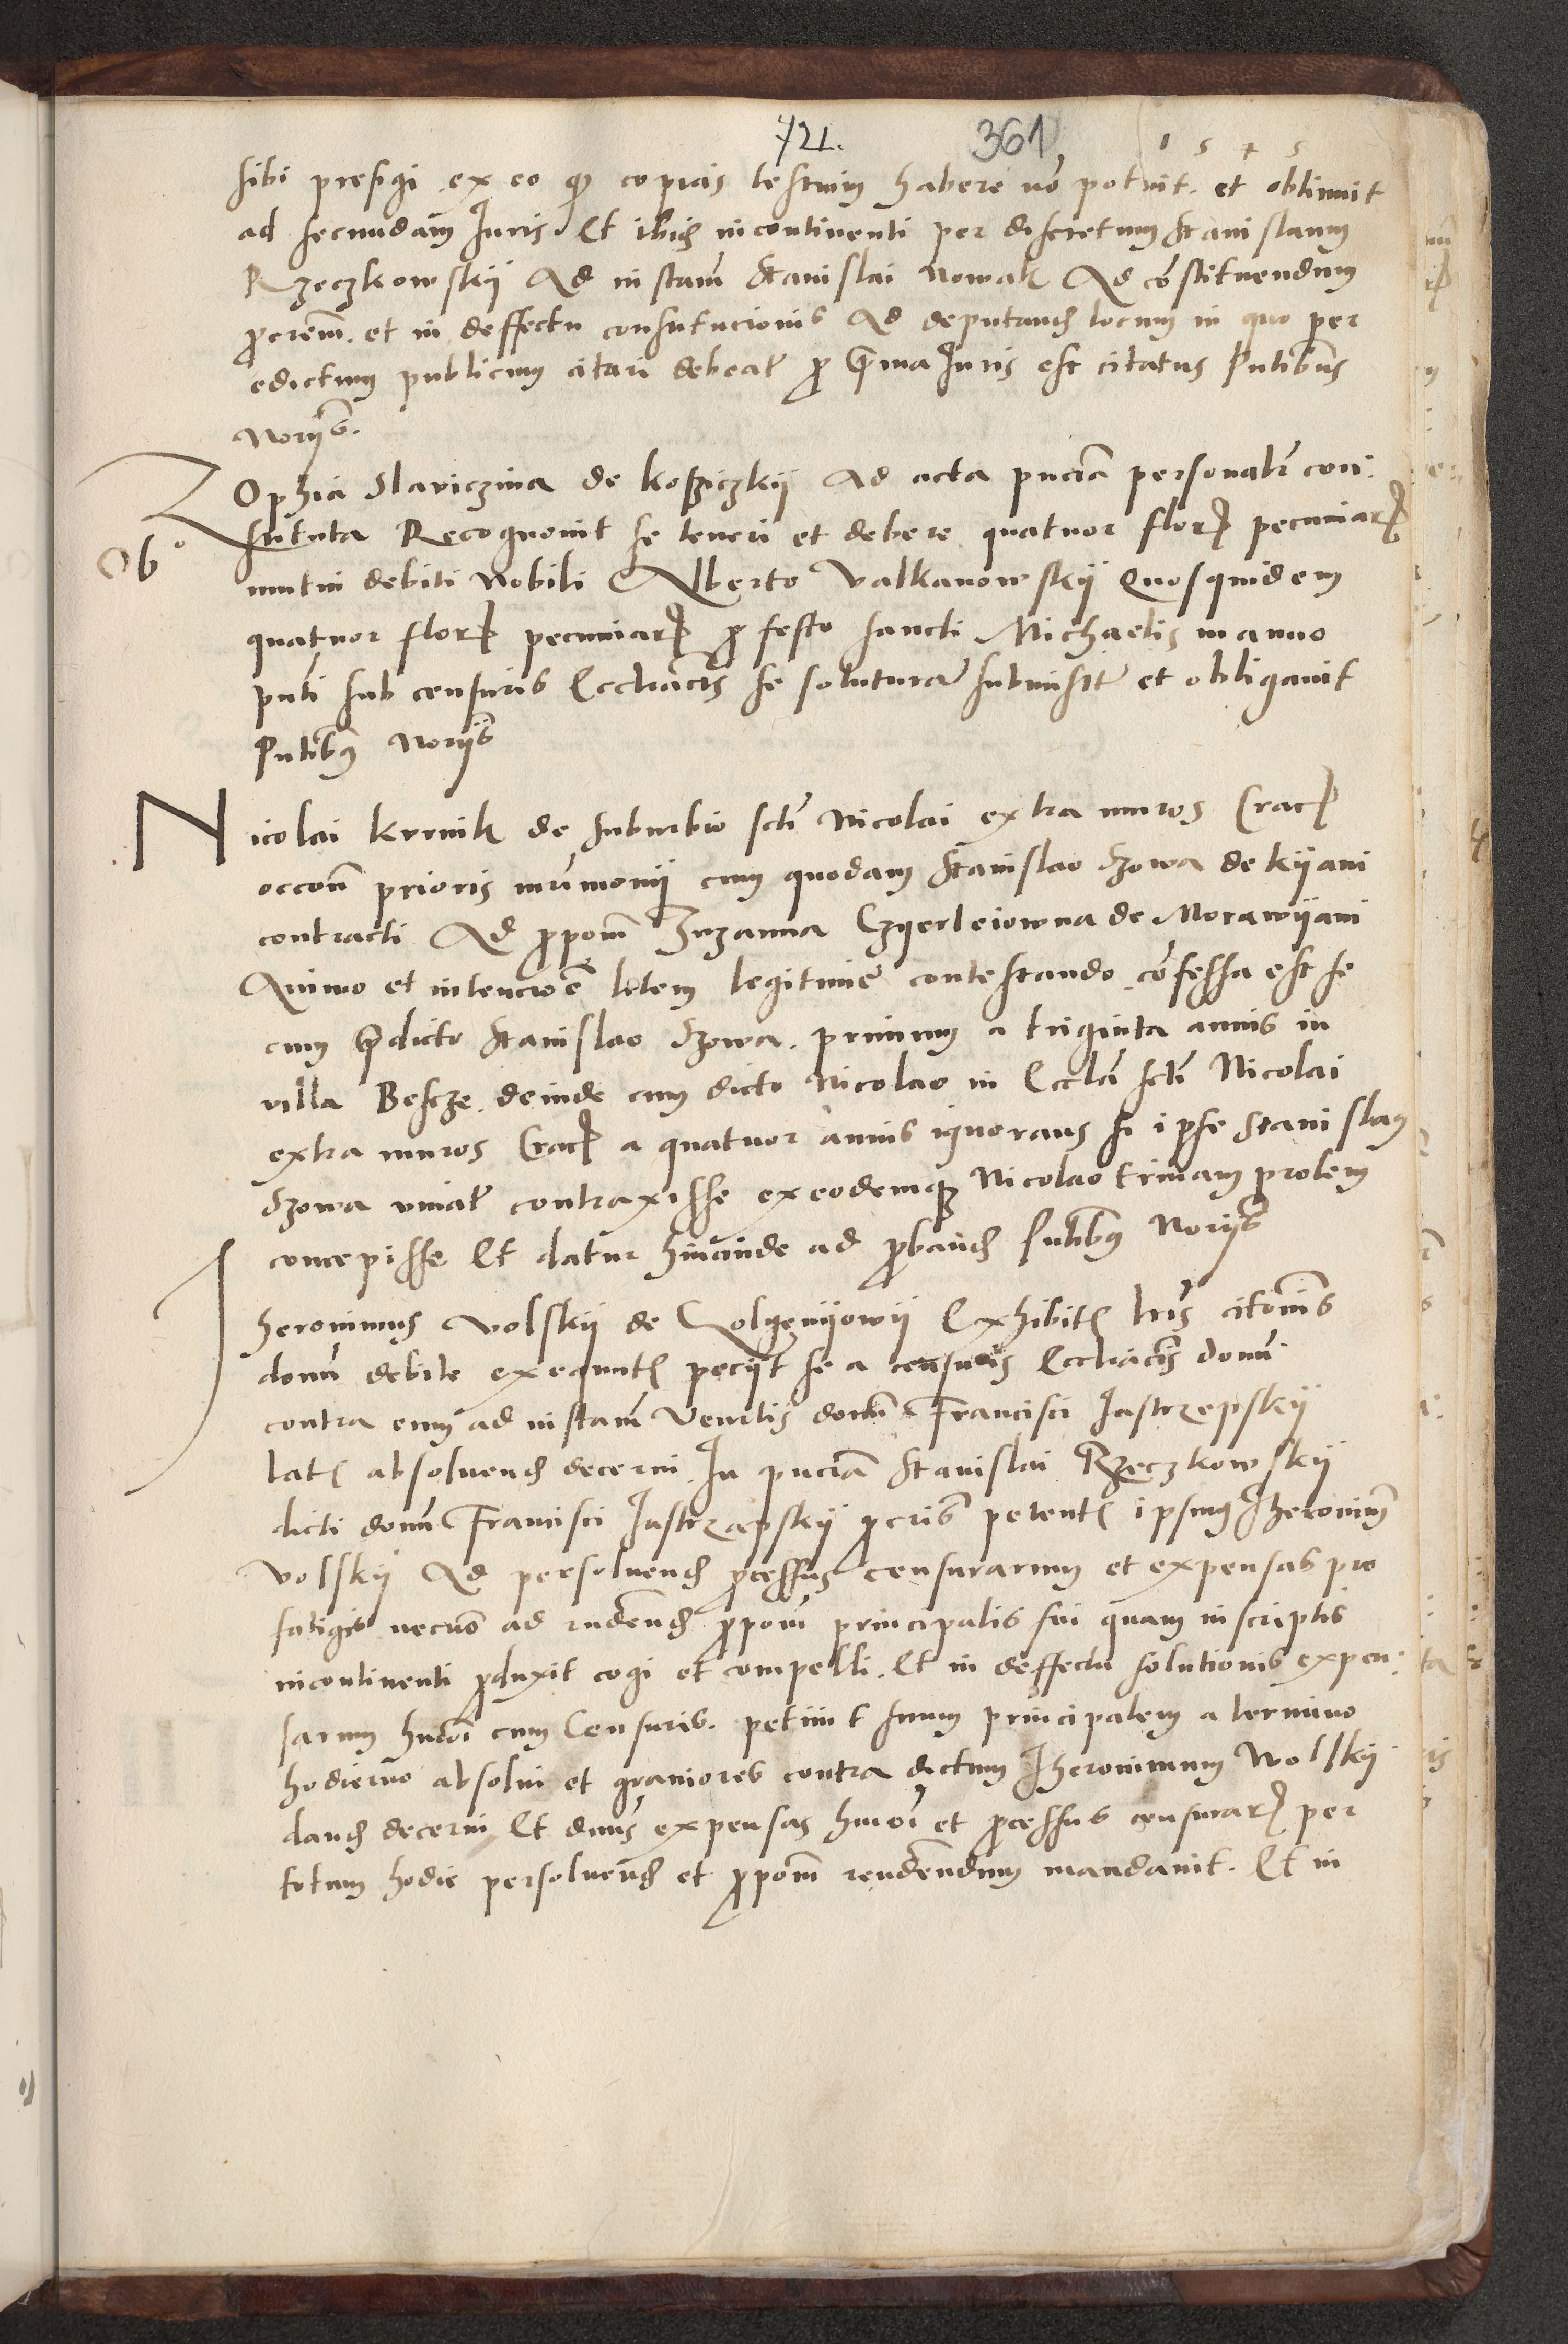 721. 361 1 5 4 5
sibi prefigi ex eo qp copias testium habere nō potuit. et obtinuit
ad secundam Juris Et ibidē incontinenti per discretum Stanislaum
Rzeczkowskÿ Ad instam̄ Stanislai Nowak Ad cōstituendum
ꝓcrēm. et in deffectu constitucionis Ad deputandū locum in quo per
edictum publicum citari debeat̄ ꝓ prima Juris est citatus Pn̄tibus
Notÿs.
ZOphia Slaviczina de koßiczkÿ Ad acta pn̄cia personalr̄ con:
Obº
stituta Recognovit se teneri et debere quatuor florꝝ pecuniarꝝ
mutui debiti Nobili Alberto Valkanowskÿ Quosquidem
quatuor florꝝ pecuniarꝝ ꝓ festo sancti Michaelis in anno
pn̄ti sub censuris Eccliacīs se soluturā submisit et obligavit
Pn̄tibus Notÿs
Nicolai kurnik de suburbio sctī Nicolai extra muros Cracꝝ
occoñ prioris mr̄imonÿ cum quodam Stanislao Szowa de kÿani
contracti Ad ꝓpoñ Zuzanna Czyerleiowna de Morawÿani
Animo et intencioē litem legitime contestando cōfessa est se
cum p̄dicto Stanislao Szowa. primum a triginta annis in
villa Besze. deinde cum dicto Nicolao in Eccliā sctī Nicolai
extra muros Cracꝝ a quatuor annis ignorans si ipse Stanislaus
Szowa vivat̄ contraxisse ex eodemqꝫ Nicolao trinam prolem
concepisse Et datur hincinde ad ꝓbandū Pn̄tibus Notÿs
Jheronimus Volskÿ de Exhibitis lrīs citōnis
domī debite exequutis peciÿt se a censuris Eccliacīs domī
contra eum ad instam̄ Venerlīs domī Francisci Jastrzepskÿ
latis absolvendū decerni. In pn̄cia Stanislai Rzeczkowskÿ
dicti domī Francisci Jastrzapskÿ ꝓcrīs petentis ipsum Jheronimū
Volskÿ Ad persolvendū ꝓcessus censurarum et expensas pro
fatigis necnō ad rn̄dendū ꝓpoñ principalis sui quam in scriptis
incontinenti ꝓduxit cogi et compelli. Et in deffectu solutionis expen:
sarum hm̄oī cum Censuris. petiit suum principalem a termino
hodierno absolvi et graviores contra dictum Jheronimum Wolskÿ
dandū decerni Et dn̄us expensas hm̄oī et ꝓcessus censurarꝝ per
totum hodie persolvendū et ꝓpoñ rendendum mandavit. Et in